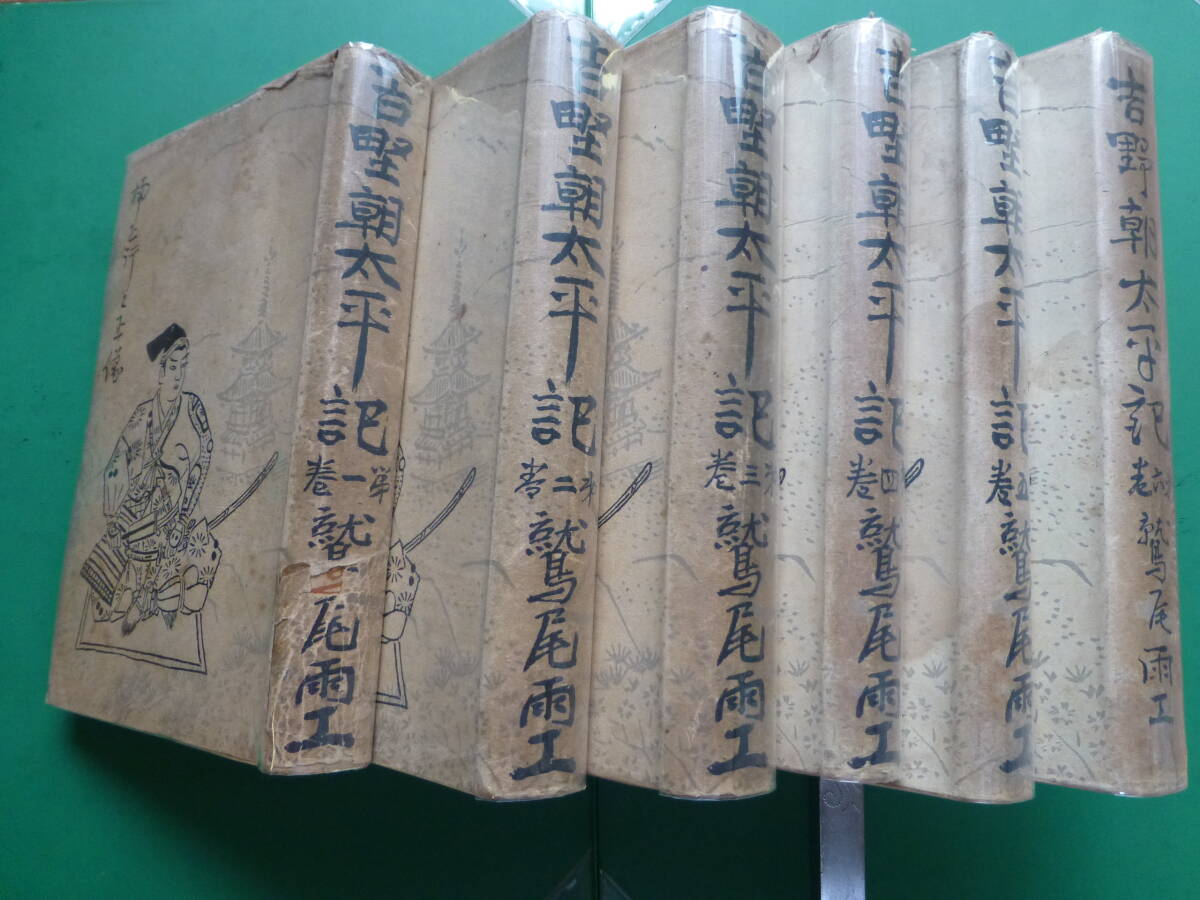 楠正行之玉像
吉埜朝太平記 第一巻 鷲尾雨工
吉埜朝太平記 第二巻 鷲尾雨工
吉埜朝太平記 第三巻 鷲尾雨工
吉埜朝太平記 第四巻 鷲尾雨工
吉埜朝太平記 巻五 鷲尾雨工
吉野朝太平記 巻六 鷲尾雨工